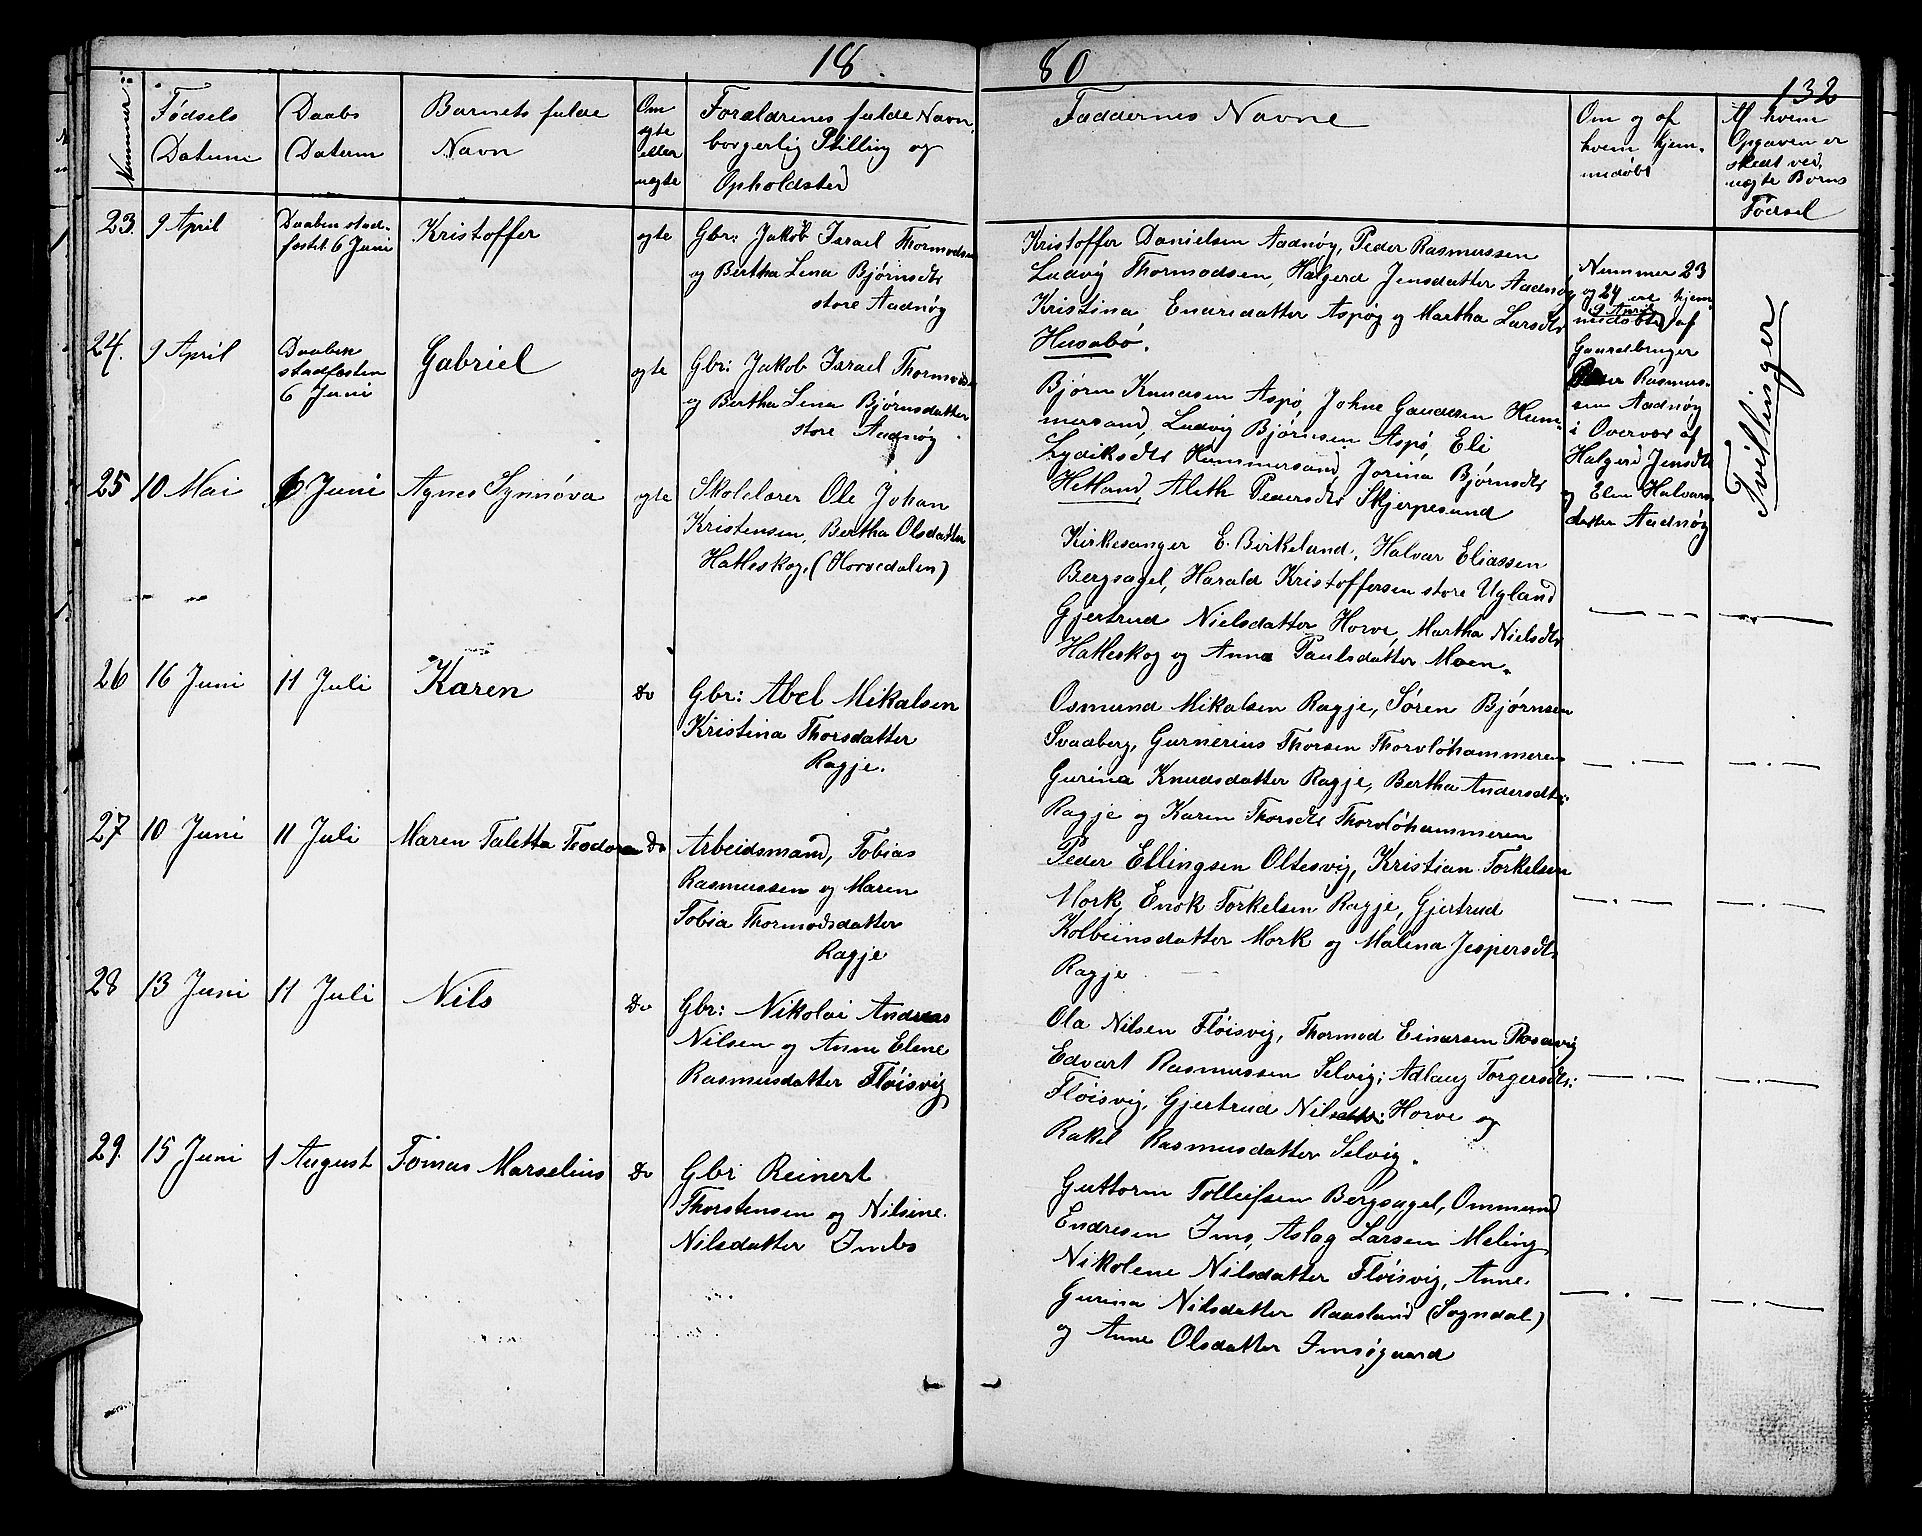 18.
80
132
Nummer:
Fødsels
Datum
Daabs
Datum
Barnets fulde
Navn
Om
ægte
eller
uægte
Forældrenes fulde Navn,
borgerlig Stilling og
Opholdsted
Faddernes Navne
Om og af
hvem hjem-
medøbt
Af hvem
Opgaven er
skedt ved
uægte Børns
Fødsel
23.
9 April
Daaben stad-
fæstet 6 Juni
Kristoffer
ægte
Gbr: Jakob Israel Thormodsen
og Bertha Lena Bjørnsdtr
store Aadnøy
Kristoffer Danielsen Aadnøy, Peder Rasmussen
Ludvig Thormodsen, Halgerd Jensdatter Aadnøy
Kristina Endrisdatter Aspøy og Martha Larsdtr
Husabø.
Nummer 23
og 24 ere hjem-
9 April
medøbte af
Gaardbruger
Peder Rasmus-
sen Aadnøy
i Overvær af
Halgerd Jensdtr
og Elen Halvars-
datter Aadnøy
Tvillinger
24.
9 April
Daaben
stadfæsten
6 Juni
Gabriel
ægte
Gbr: Jakob Israel Thormods
og Bertha Lena Bjørnsdatter
store Aadnøy.
Bjørn Knudsen Aspø, Johne Gaudesen Hum-
mersand, Ludvig Bjørnsen Aspø, Eli
Lydiksdtr Hummersand, Jorina Bjørnsdtr
Hetland, Aleth Pedersdtr Skjerpesund
25
10 Mai
6 Juni
Agnes Synnøva
ægte
Skolelærer Ole Johan
Kristensen, Bertha Olsdatter
Hatleskog, (Horvedalen)
Kirkesanger E. Birkeland, Halvar Eliassen
Bergsagel, Harald Kristoffersen store Ugland
Gjertrud Nielsdatter Horve, Martha Nielsdtr
Hatleskog og Anna Paulsdatter Moen.
26
16 Juni
11 Juli
Karen
Do
Gbr: Abel Mikalsen
Kristina Thorsdatter
Ragje.
Osmund Mikalsen Ragje, Søren Bjørnsen
Svadberg, Gurnerius Thorsen Thorvløhammeren
Gurina Knudsdatter Ragje, Bertha Andersdtr:
Ragje og Karen Thorsdtr Thorvløhammeren
27
10 Juni
11 Juli
Maren Taletta Teodora
Do
Arbeidsmand, Tobias
Rasmussen og Maren
Tobia Thormodsdatter
Ragje
Peder Ellingsen Oltesvig, Kristian Torkelsen
Mork, Enok Torkelsen Ragje, Gjertrud
Kolbeinsdatter Mork og Malena Jespersdtr
Ragje
28
13 Juni
11 Juli
Nils
Do
Gbr: Nikolai Andreas
Nilsen og Anne Elene
Rasmusdatter Fløisvig
Ola Nilsen Fløisvig, Thormod Einarsen Rosavig
Edvart Rasmussen Selvig; Adlaug Torgersdtr:
Fløisvig, Gjertrud Nilsdtr: Horve og
Rakel Rasmusdatter Selvig.
29.
15 Juni
1 August
Tomas Marselius
Do
Gbr Reinert
Thorstensen og Nilsine
Nilsdatter Imbs
Guttorm Tolleifsen Bergsagel, Ommund
Endresen Ims, Aslag Larsen Meling
Nikolene Nilsdatter Fløisvig, Anne
Gurina Nilsdatter Raasland (Sogndal)
og Anne Olsdatter Imsøgaard